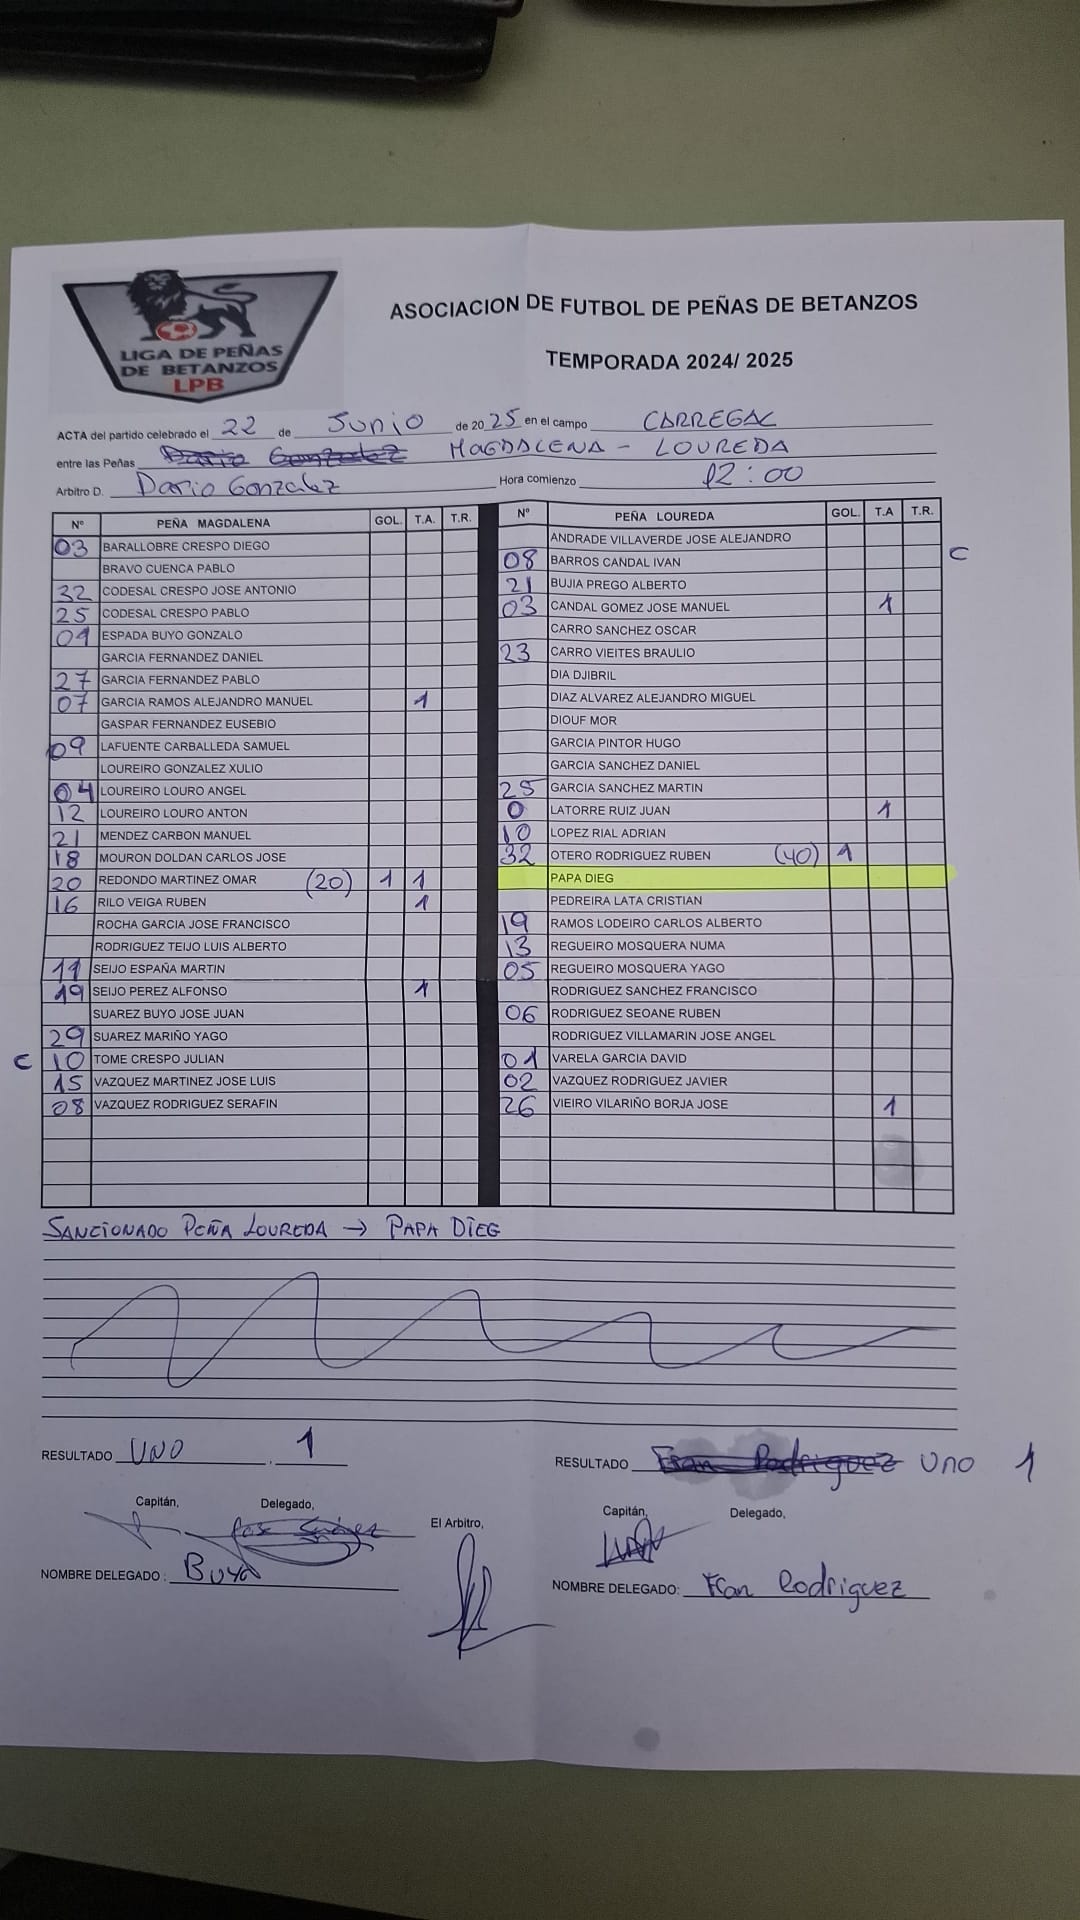 LIGA DE PEÑAS
DE BETANZOS
LPB
ASOCIACION DE FUTBOL DE PEÑAS DE BETANZOS
TEMPORADA 2024/ 2025
ACTA del partido celebrado el 22 de Junio de 2025 en el campo CARREGAL
entre las Peñas Dario Gonzalez MAGDALENA - LOUREDA
Arbitro D. Dario Gonzalez Hora comienzo 12:00
Nº PEÑA MAGDALENA GOL. T.A. T.R.
03 BARALLOBRE CRESPO DIEGO
BRAVO CUENCA PABLO
32 CODESAL CRESPO JOSE ANTONIO
25 CODESAL CRESPO PABLO
01 ESPADA BUYO GONZALO
GARCIA FERNANDEZ DANIEL
27 GARCIA FERNANDEZ PABLO
07 GARCIA RAMOS ALEJANDRO MANUEL 1
GASPAR FERNANDEZ EUSEBIO
09 LAFUENTE CARBALLEDA SAMUEL
LOUREIRO GONZALEZ XULIO
04 LOUREIRO LOURO ANGEL
12 LOUREIRO LOURO ANTON
21 MENDEZ CARBON MANUEL
18 MOURON DOLDAN CARLOS JOSE
20 REDONDO MARTINEZ OMAR (20) 1 1
16 RILO VEIGA RUBEN 1
ROCHA GARCIA JOSE FRANCISCO
RODRIGUEZ TEIJO LUIS ALBERTO
11 SEIJO ESPAÑA MARTIN
19 SEIJO PEREZ ALFONSO 1
SUAREZ BUYO JOSE JUAN
29 SUAREZ MARIÑO YAGO
C 10 TOME CRESPO JULIAN
15 VAZQUEZ MARTINEZ JOSE LUIS
08 VAZQUEZ RODRIGUEZ SERAFIN
Nº PEÑA LOUREDA GOL. T.A T.R.
ANDRADE VILLAVERDE JOSE ALEJANDRO
08 BARROS CANDAL IVAN C
21 BUJIA PREGO ALBERTO
03 CANDAL GOMEZ JOSE MANUEL 1
CARRO SANCHEZ OSCAR
23 CARRO VIEITES BRAULIO
DIA DJIBRIL
DIAZ ALVAREZ ALEJANDRO MIGUEL
DIOUF MOR
GARCIA PINTOR HUGO
GARCIA SANCHEZ DANIEL
25 GARCIA SANCHEZ MARTIN
0 LATORRE RUIZ JUAN 1
10 LOPEZ RIAL ADRIAN
32 OTERO RODRIGUEZ RUBEN (40) 1
PAPA DIEG
PEDREIRA LATA CRISTIAN
19 RAMOS LODEIRO CARLOS ALBERTO
13 REGUEIRO MOSQUERA NUMA
05 REGUEIRO MOSQUERA YAGO
RODRIGUEZ SANCHEZ FRANCISCO
06 RODRIGUEZ SEOANE RUBEN
RODRIGUEZ VILLAMARIN JOSE ANGEL
01 VARELA GARCIA DAVID
02 VAZQUEZ RODRIGUEZ JAVIER
26 VIEIRO VILARIÑO BORJA JOSE 1
SANCIONADO PEÑA LOUREDA → PAPA DIEG
RESULTADO UNO . 1
RESULTADO Fran Rodriguez UNO 1
Capitán, Delegado,
El Arbitro,
Capitán, Delegado,
NOMBRE DELEGADO : BUYO
NOMBRE DELEGADO: Fran Rodriguez